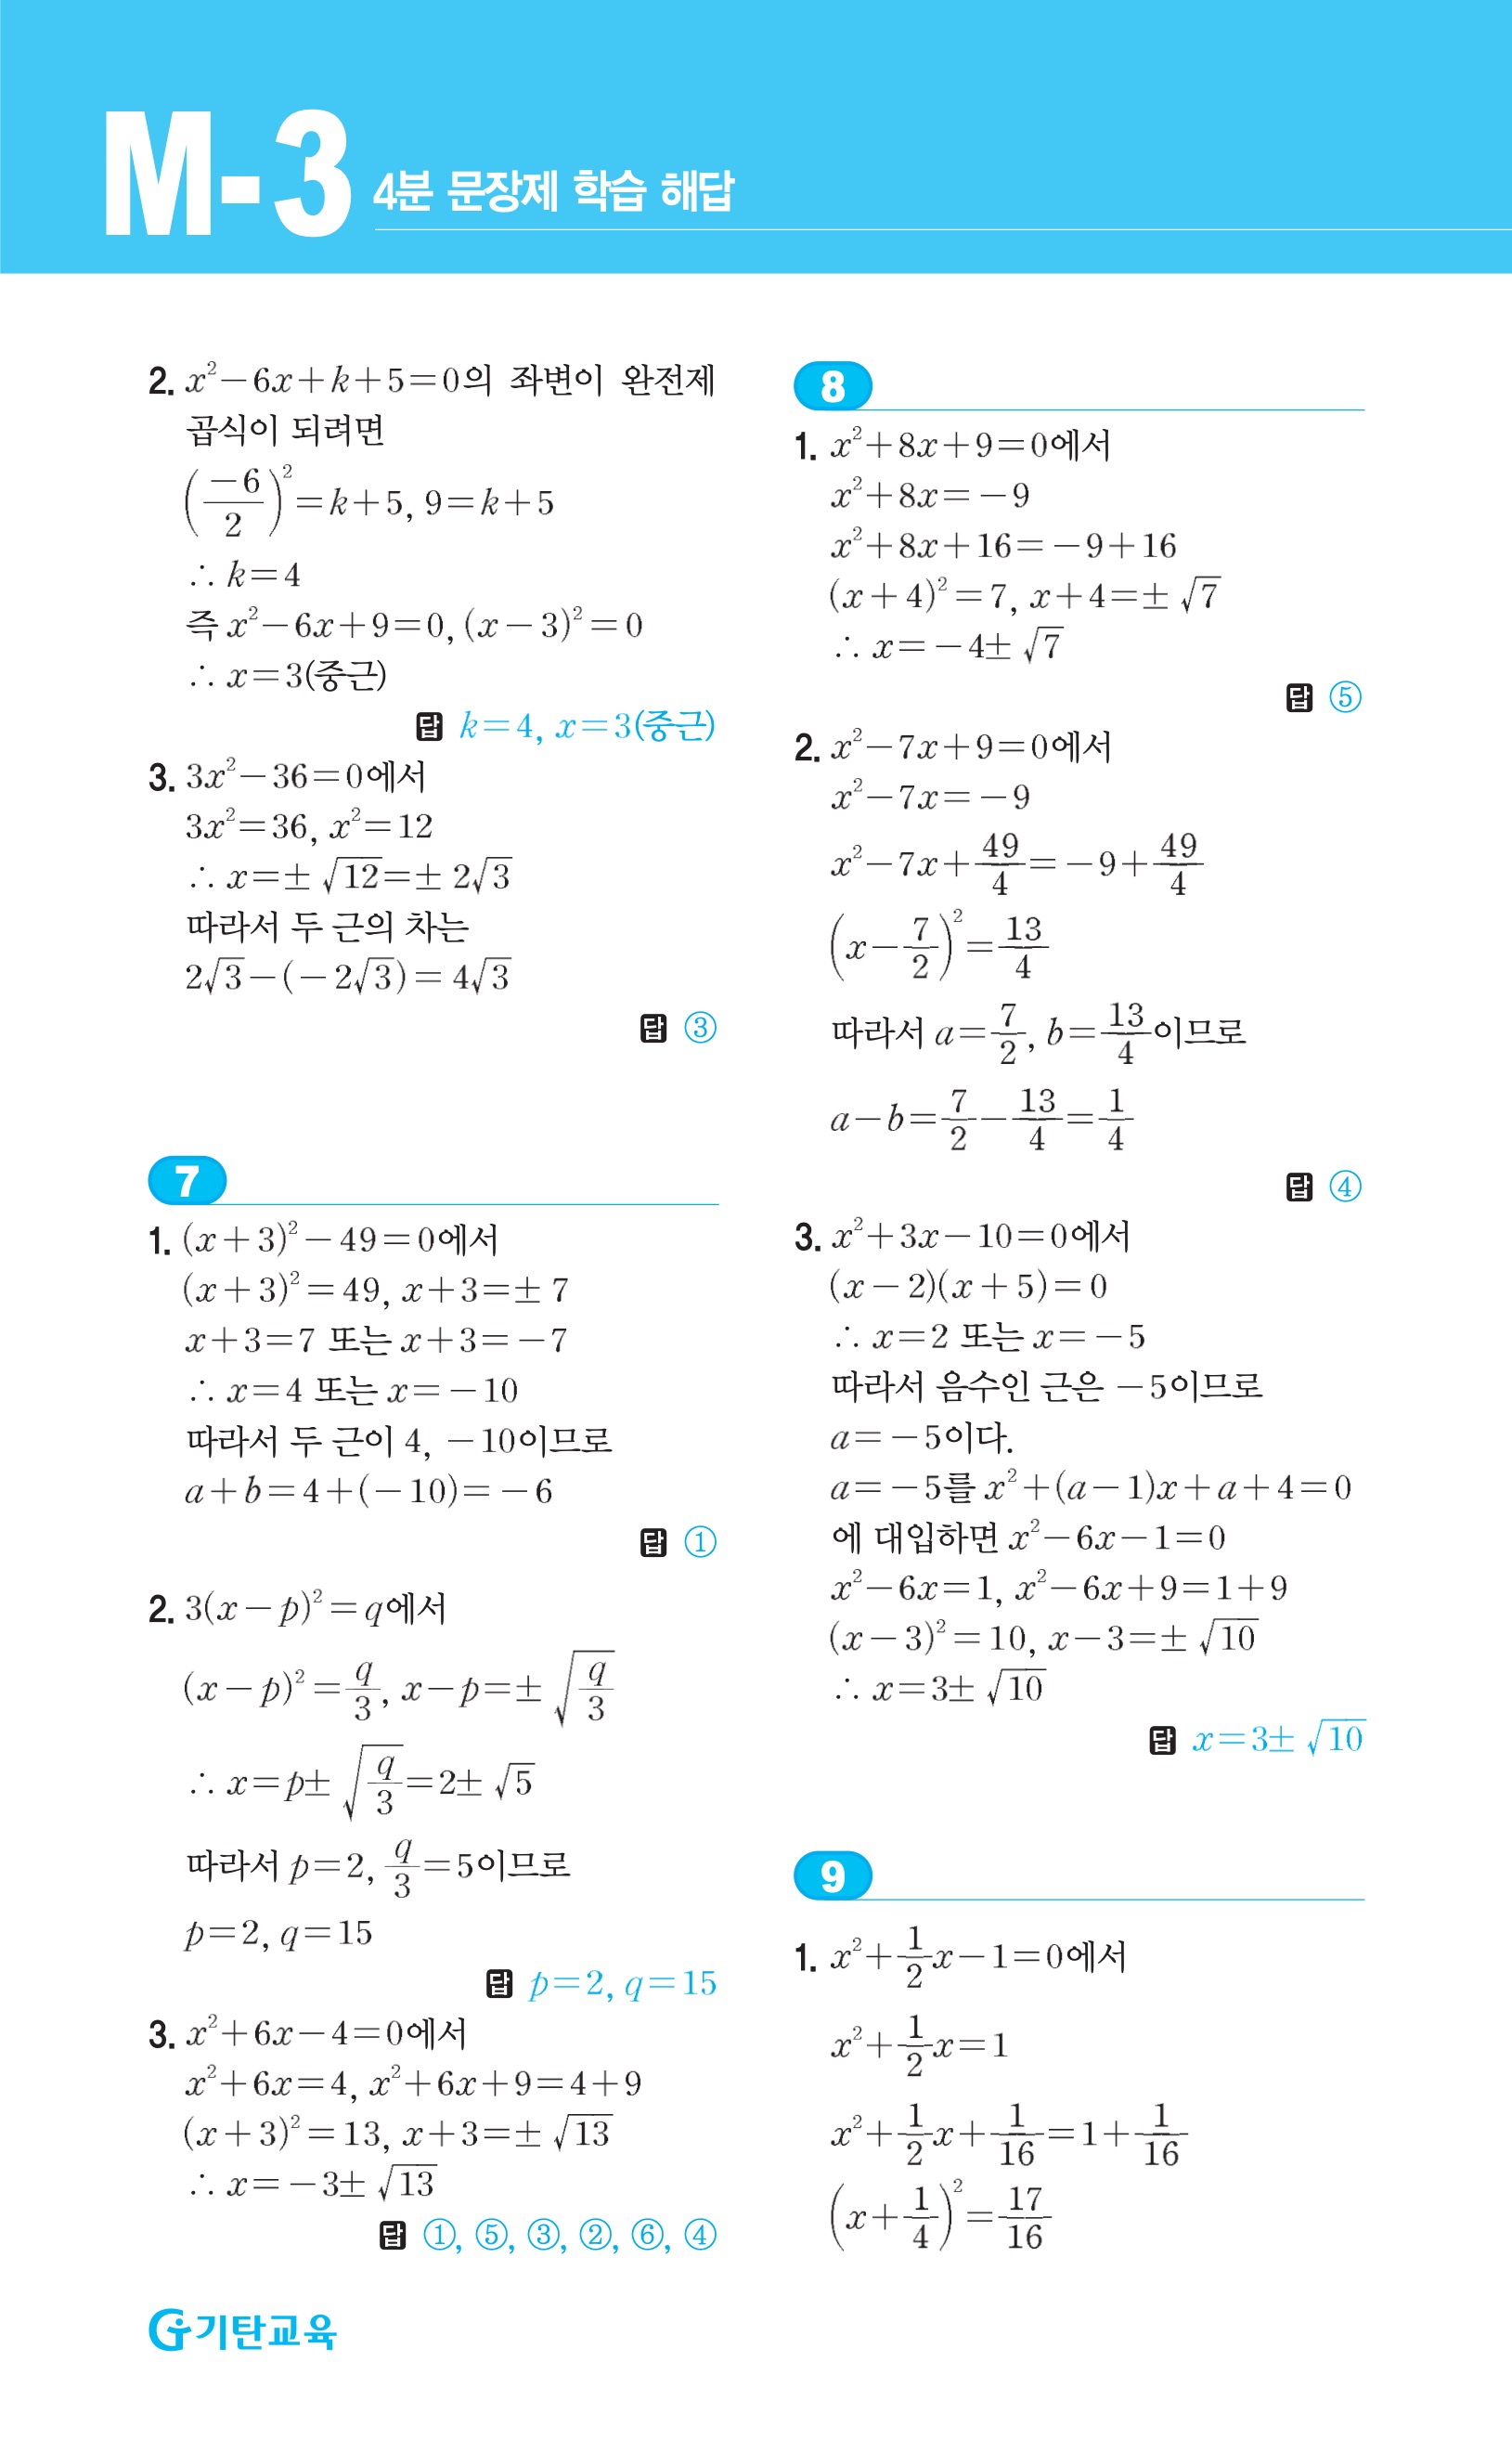 M-3 4분 문장제 학습 해답
2. x²－6x＋k＋5＝0의 좌변이 완전제
곱식이 되려면
(－6/2)²＝k＋5, 9＝k＋5
∴ k＝4
즉 x²－6x＋9＝0, (x－3)²＝0
∴ x＝3(중근)
답 k＝4, x＝3(중근)
3. 3x²－36＝0에서
3x²＝36, x²＝12
∴ x＝±√12＝±2√3
따라서 두 근의 차는
2√3－(－2√3)＝4√3
답 ③
7
1. (x＋3)²－49＝0에서
(x＋3)²＝49, x＋3＝±7
x＋3＝7 또는 x＋3＝－7
∴ x＝4 또는 x＝－10
따라서 두 근이 4, －10이므로
a＋b＝4＋(－10)＝－6
답 ①
2. 3(x－p)²＝q에서
(x－p)²＝q/3, x－p＝±√(q/3)
∴ x＝p±√(q/3)＝2±√5
따라서 p＝2, q/3＝5이므로
p＝2, q＝15
답 p＝2, q＝15
3. x²＋6x－4＝0에서
x²＋6x＝4, x²＋6x＋9＝4＋9
(x＋3)²＝13, x＋3＝±√13
∴ x＝－3±√13
답 ①, ⑤, ③, ②, ⑥, ④
8
1. x²＋8x＋9＝0에서
x²＋8x＝－9
x²＋8x＋16＝－9＋16
(x＋4)²＝7, x＋4＝±√7
∴ x＝－4±√7
답 ⑤
2. x²－7x＋9＝0에서
x²－7x＝－9
x²－7x＋49/4＝－9＋49/4
(x－7/2)²＝13/4
따라서 a＝7/2, b＝13/4이므로
a－b＝7/2－13/4＝1/4
답 ④
3. x²＋3x－10＝0에서
(x－2)(x＋5)＝0
∴ x＝2 또는 x＝－5
따라서 음수인 근은 －5이므로
a＝－5이다.
a＝－5를 x²＋(a－1)x＋a＋4＝0
에 대입하면 x²－6x－1＝0
x²－6x＝1, x²－6x＋9＝1＋9
(x－3)²＝10, x－3＝±√10
∴ x＝3±√10
답 x＝3±√10
9
1. x²＋1/2x－1＝0에서
x²＋1/2x＝1
x²＋1/2x＋1/16＝1＋1/16
(x＋1/4)²＝17/16
기탄교육